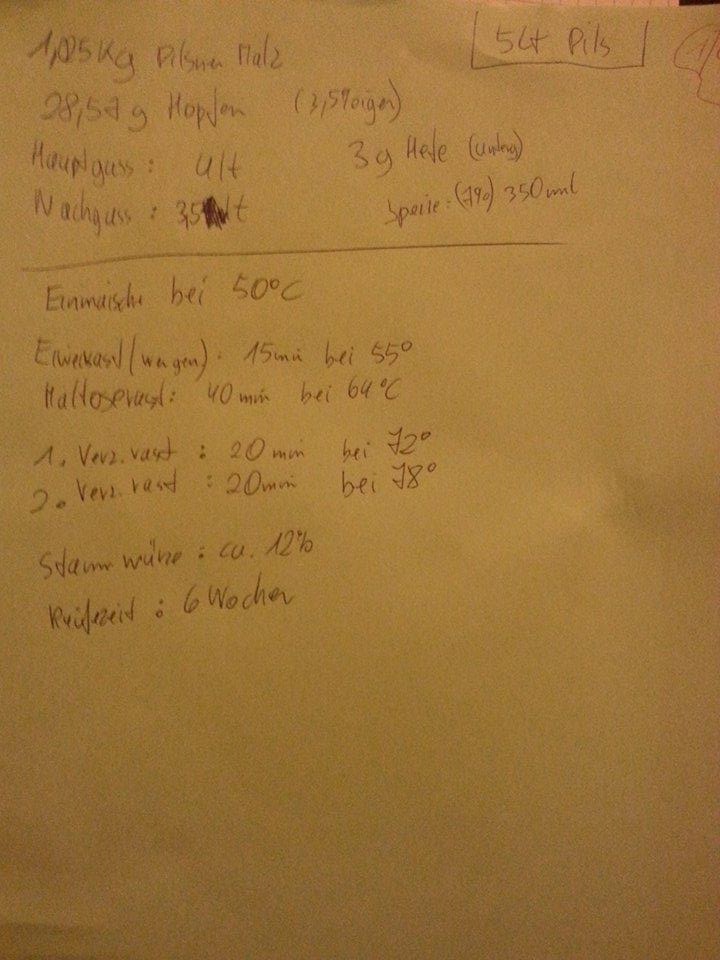 5Lt Pils
1,05Kg Pilsner Malz
28,57g Hopfen (3,5%iger)
Hauptguss: 4lt
3g Hefe (unterg)
Nachguss: 3,5 lt
Speise: (7%) 350ml
Einmaische bei 50°C
Eiweisrast (wenigen): 15min bei 55°
Maltoserast: 40min bei 64°C
1. Verz.rast: 20min bei 72°
2. Verz.rast: 20min bei 78°
Stammwürze: ca. 12%
Reifezeit: 6 Wochen